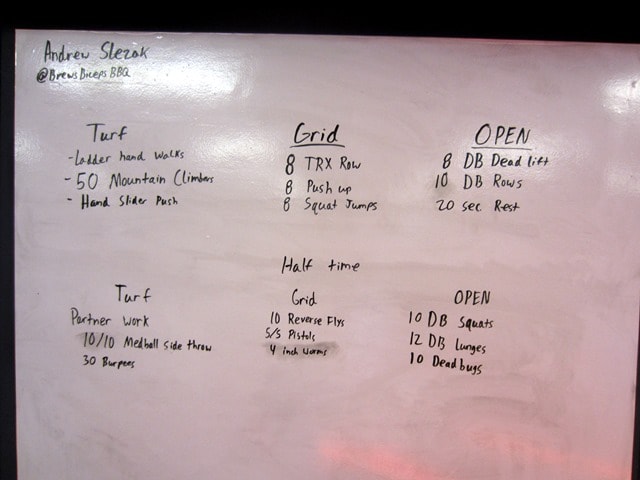 Andrew Slezak
@BrewsBicepsBBQ
Turf
-Ladder hand walks
- 50 Mountain Climbers
- Hand Slider Push
Grid
8 TRX Row
8 Push up
8 Squat Jumps
OPEN
8 DB Dead lift
10 DB Rows
20 sec. Rest
Half time
Turf
Partner work
10/10 Medball side throw
30 Burpees
Grid
10 Reverse Flys
5/5 Pistols
4 inch worms
OPEN
10 DB Squats
12 DB Lunges
10 Deadbugs